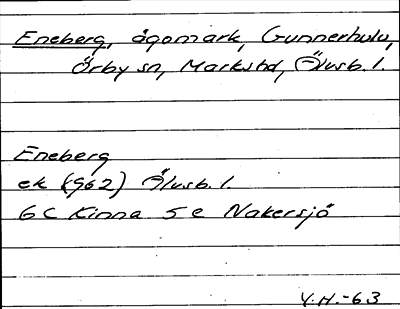 Eneberg, ägomark, Gunnerhulu,
Örby sn, Markshd, Älvsb. l.
Eneberg
ek (962) Älvsb. l.
6 C Kinna 5 e Nakersjö
Y.H.-63